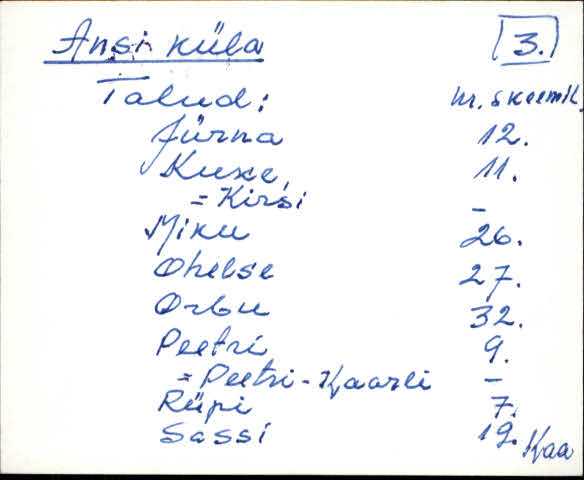 Ansi küla 3.
Talud: nr. skeemil
Jürna 12.
Kuke, 11.
= Kirsi –
Miku 26.
Ohelse 27.
Orbu 32.
Peetri 9.
= Peetri-Kaarli –
Rüpi 7.
Sassi 19.
Kaa